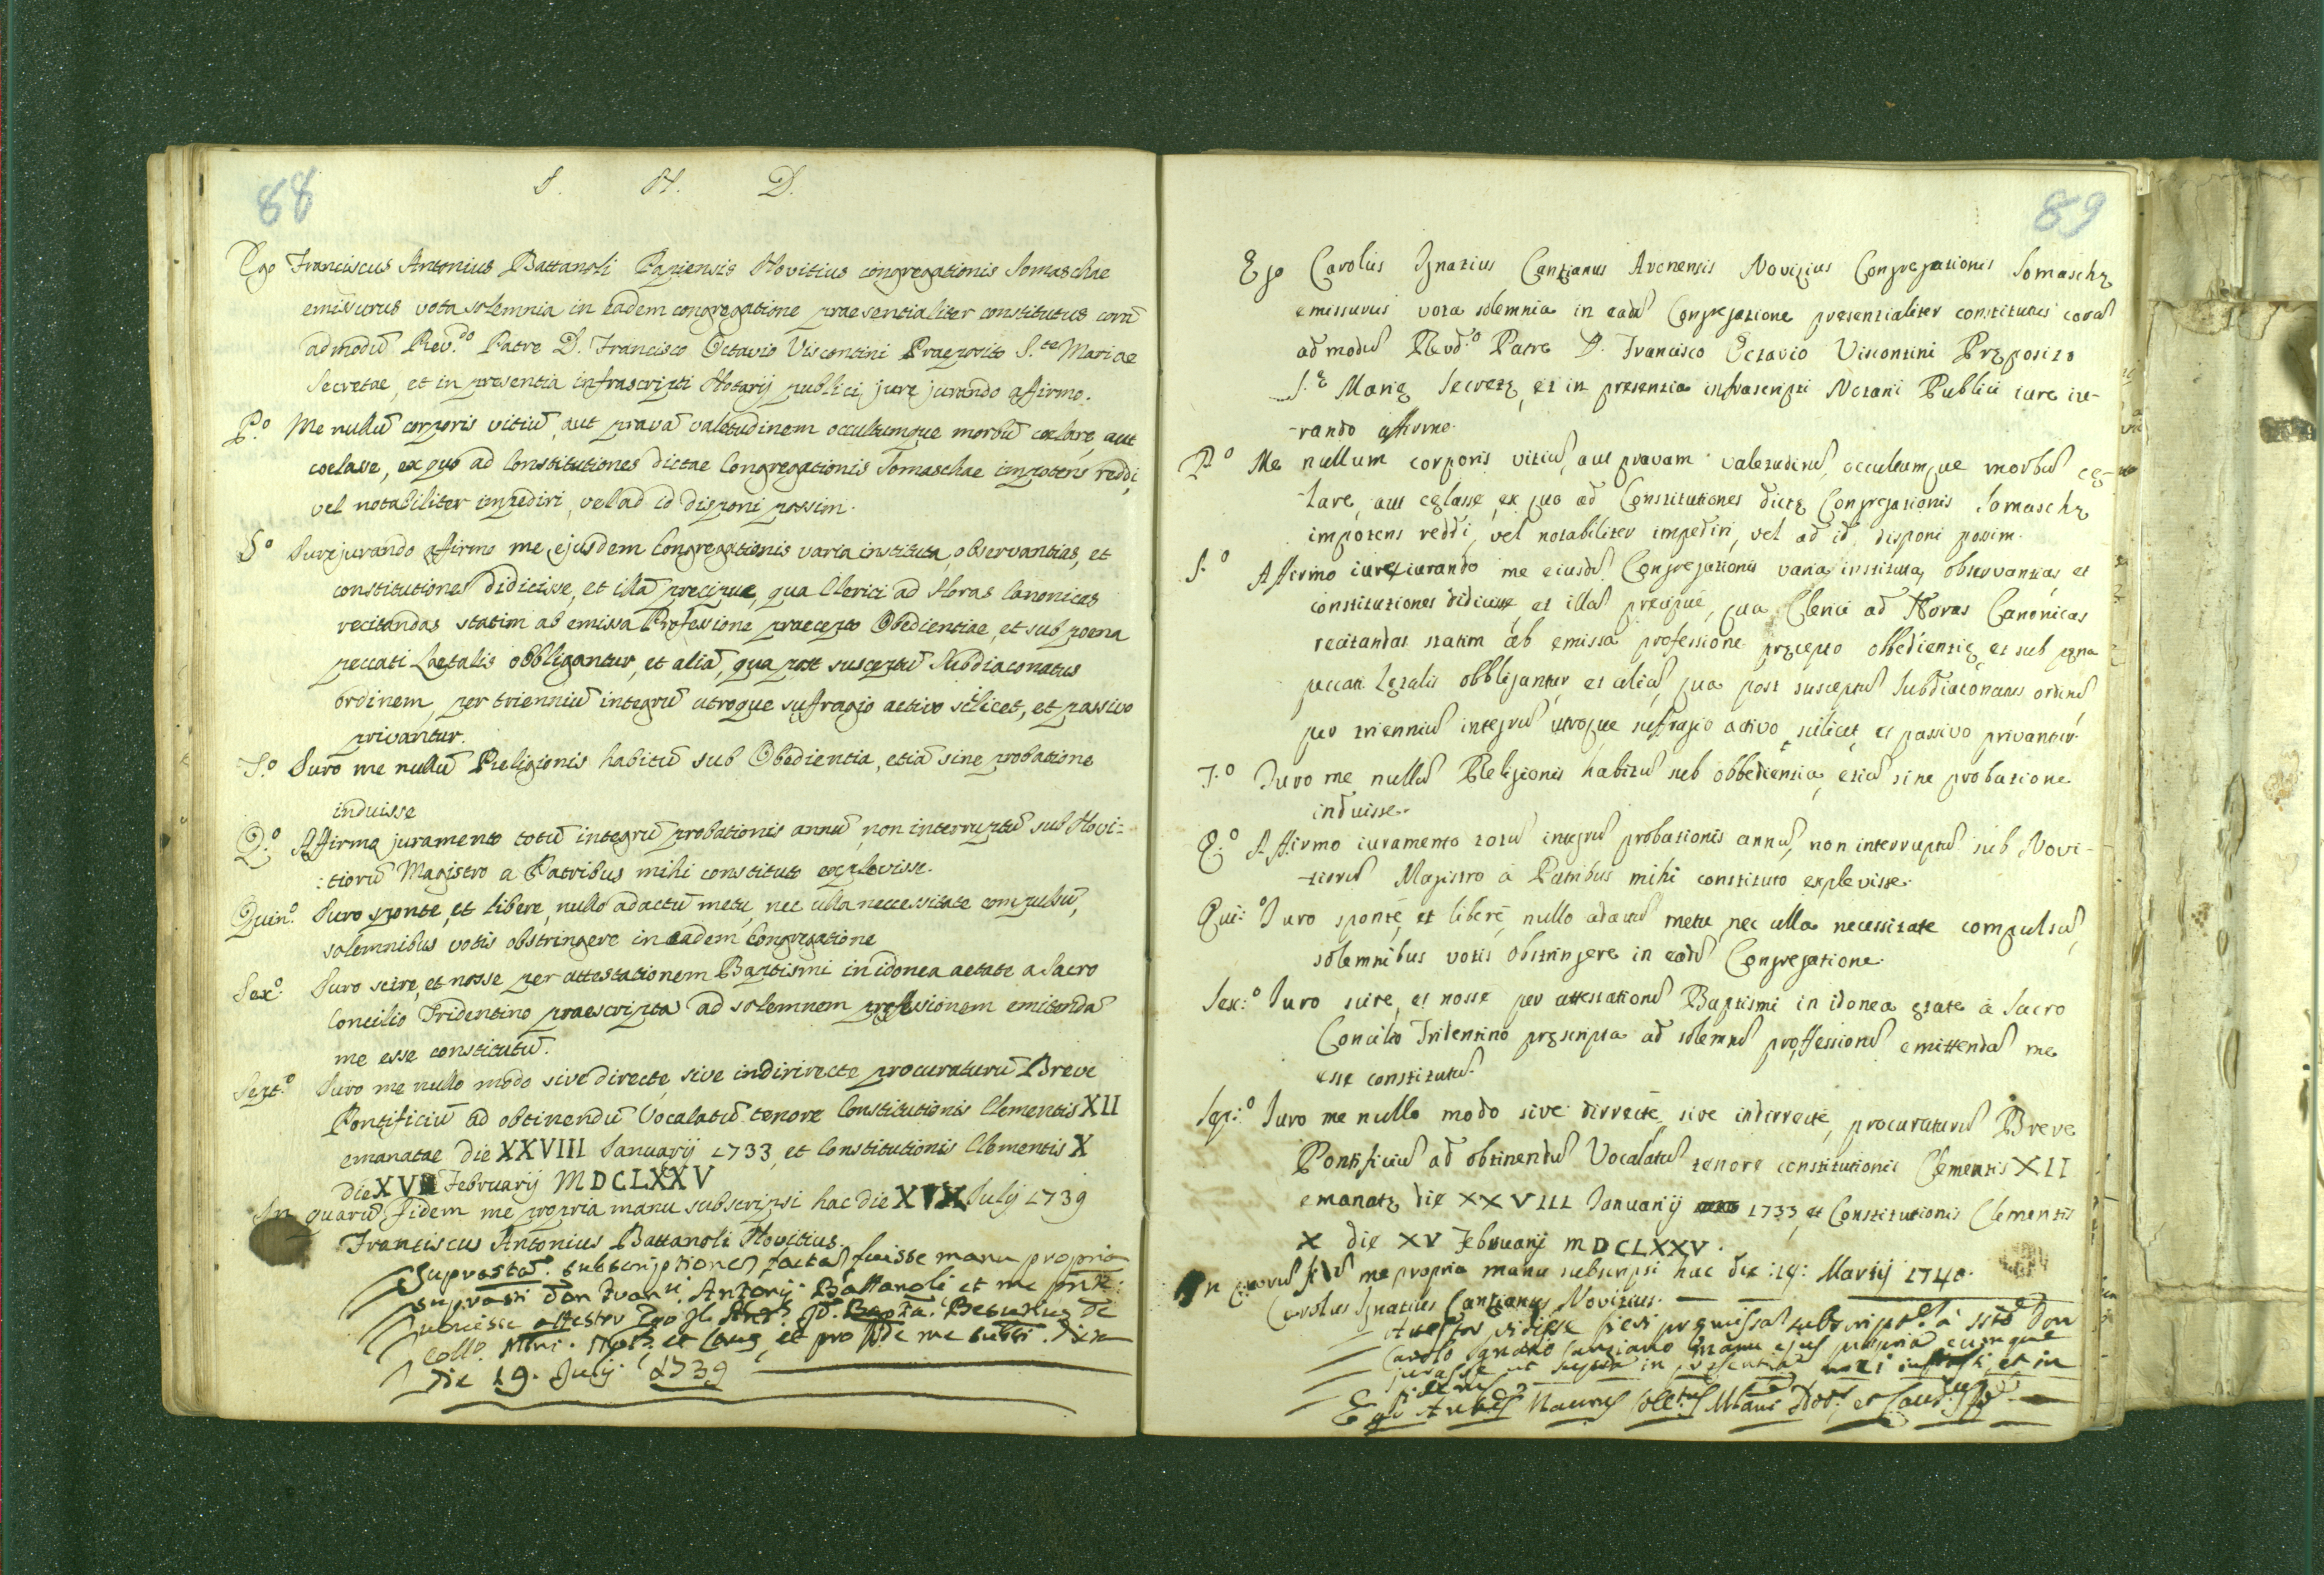 88
I. N. D.
Ego Franciscus Antonius Battanoli Papiensis Novitius congregationis Somaschae
emissurus vota solemnia in eadem congregatione praesentialiter constitutus corā
admodū Rev.do Patre D. Francisco Octavio Viscontini Praeposito S.tae Mariae
Secretae, et in presentia infrascripti Notarij publici, jure jurando affirmo.
P.o Me nullū corporis vitiū, aut pravā valetudinem occultumque morbū coelare, aut
coelasse, ex quo ad Constitutiones dictae Congregationis Somaschae impotens reddi,
vel notabiliter impediri, vel ad id disponi possim.
S.o Jurejurando affirmo me ejusdem Congregationis varia instituta, observantias, et
constitutiones didicisse, et illā precipue, qua Clerici ad Horas Canonicas
recitandas statim ab emissa Professione praecepto Obedientiae, et sub poena
peccati Laetalis obbligantur, et aliā, qua post susceptū Subdiaconatus
ordinem, per trienniū integrū utroque sufragio activo scilicet, et passivo
privantur.
T.o Juro me nullū Religionis habitū sub Obedientia, etiā sine probatione
induisse
Q.o Affirmo juramento totū integrū probationis annū, non interruptū sub Novi=
:tiorū Magistro a Patribus mihi constituto explevisse.
Quin.o Juro sponte, et libere, nullo adactū metu, nec ulla neccessitate compulsū,
solemnibus votis obstringere in eadem Congregatione
Sex.o Juro scire, et nosse per attestationem Baptismi in idonea aetate a Sacro
Concilio Tridentino praescripta ad solemnem professionem emitendā
me esse constitutū.
Sept.o Juro me nullo modo sive directe, sive indirirecte procuraturū Breve
Pontificiū ad obtinendū Vocalatū tenore Constitutionis Clementis XII
emanatae die XXVIII Januarij 1733, et Constitutionis Clementis X
die XV Februarij MDCLXXV
In quarū fidem me propria manu subscripsi hac die Julij 1739
Franciscus Antonius Battanoli Novitius.
Suprastā. subscriptionē factā fuisse manu propria
suprasti Don Antonij Battanoli et me
attestor Ego
et pro fide me
die 19. Julij 1739
89
Ego Carolus Ignatius Cantianus Novizius Congregationis Somaschę
emissurus vota solemnia in eadē Congregatione presentialiter constitutus corā
ad modū Revd.o Patre D. Francisco Octavio Viscontini Pręposito
S.ę Marię Secretę, et in presentia infrascripti Notarii Publici iure iu-
-rando affirmo.
P.o Me nullum corporis vitiū, aut pravam valetudinē, occultumque morbū cę-
-lare, aut cęlasse, ex quo ad Constitutiones dictę Congregationis Somaschę
impotens reddi, vel notabiliter impediri, vel ad id disponi possim.
S.o Affirmo iureiurando me eiusdē Congregationis varia instituta, observantias et
constitutiones didicisse et illā precipuè, qua Clerici ad Horas Canonicas
recitandas statim ab emissa professione pręcepto obbedientię et sub pęna
peccati Lętalis obbligantur, et aliā, qua post susceptū Subdiaconatus ordinē
per trienniū integrū utroque sufragio activo scilicet, et passivo privantur.
T.o Juro me nullū Religionis habitū sub obbedientia, etiā sine probatione
induisse.
Q.o Affirmo iuramento totū integrū probationis annū, non interruptū sub Novi-
-tiorū Magistro à Patribus mihi constituto explevisse.
Qui:o Juro spontè, et liberè, nullo adactū metu nec ulla necessitate compulsū,
solemnibus votis obstringere in eadē Congregatione.
Sex:o Juro scire, et nosse per attestationē Baptismi in idonea ętate à Sacro
Concilio Tridentino pręscripta ad solemnē proffessionē emittendā me
esse constitutū.
Sep:o Juro me nullo modo sive dirrectè, sive indirrectè, procuraturū Breve
Pontificiū ad obtinendū Vocalatū tenore constitutionis Clementis XII
emanatę die XXVIII Januarij 1733, et Constitutionis Clementis
X die XV Februarij MDCLXXV.
In quorū fidē me propria manu subscripsi hac die :19: Martij 1740.
Carolus Ignatius Cantianus Novizius.
Attestor vidisse fieri premissā subscript.ē à Don
Carolo Ignatio Cantiano manu ejus propria eumque
jurasse ut supra in presentia et in